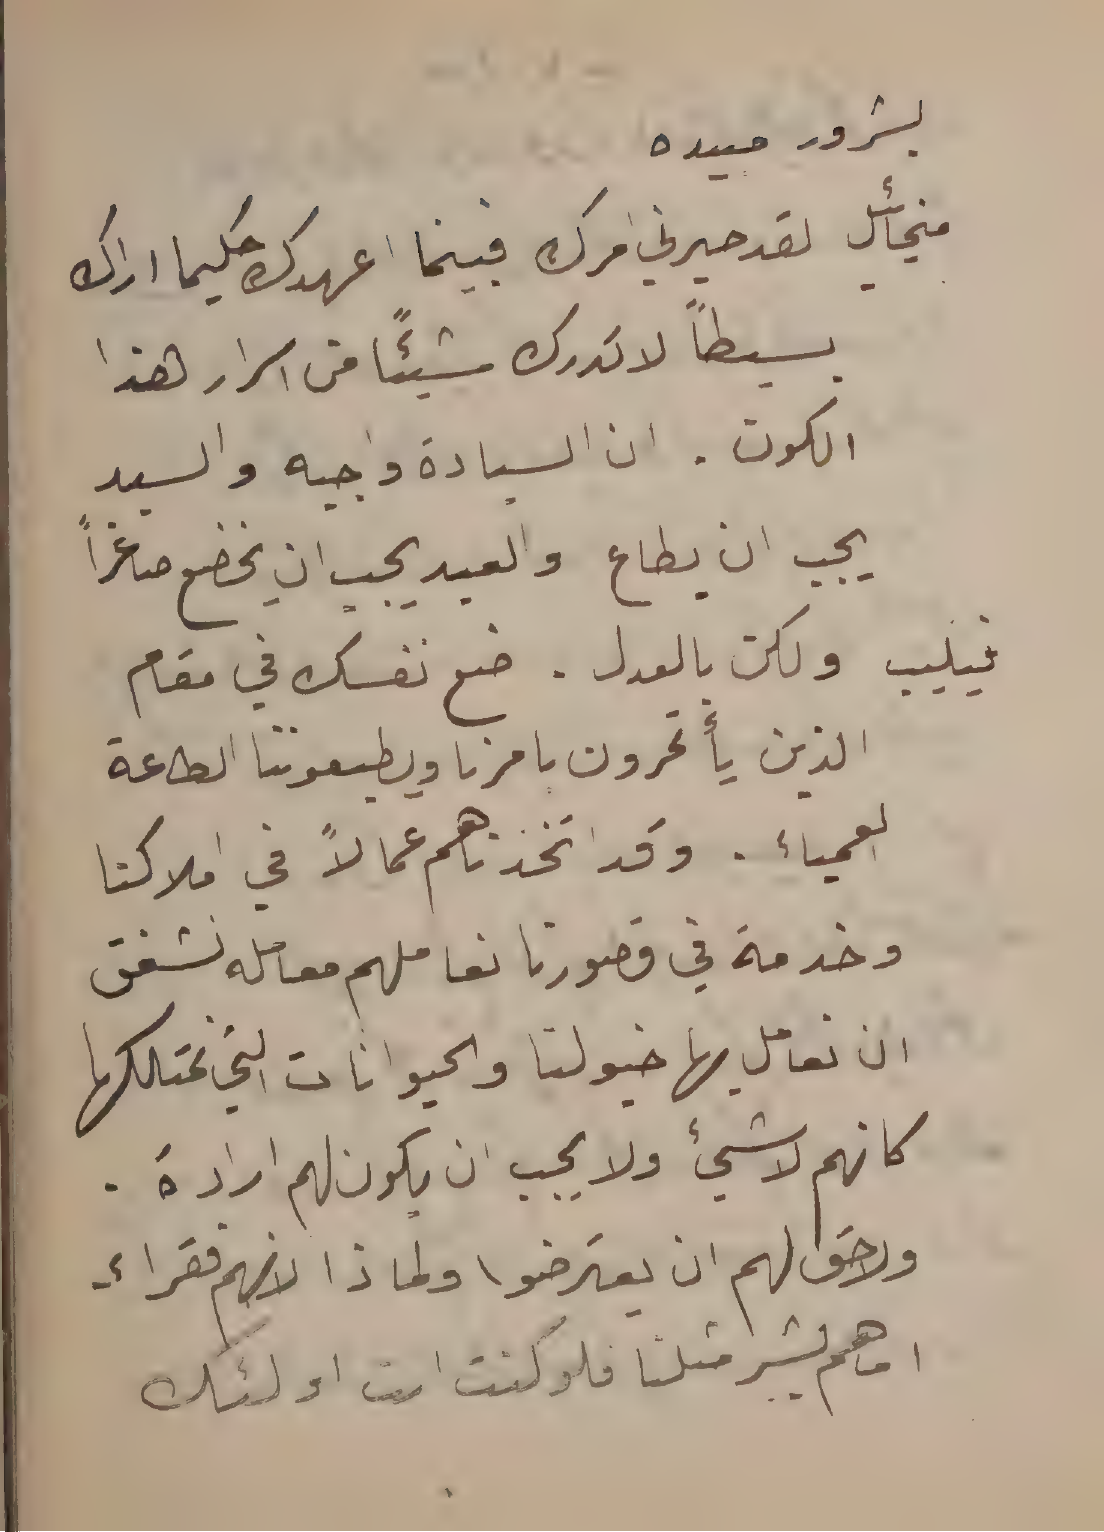 بشرور عبيده
منخائيل لقد حيرني امرك فبينما اعهدك حكيما اراك
بسيطاً لا تدرك شيئًا من اسرار هذا
الكون . ان السيادة واجبه والسيد
يجب ان يطاع والعبد يجب ان يخضع صاغراً
فيليب ولكن بالعدل . ضع نفسك في مقام
الذين يأتمرون بامرنا ويطيعوننا الطاعة
العمياء . وقد اتخذناهم عمالاً في املاكنا
وخدمة في قصورنا نعاملهم معامله نشفق
ان نعامل بها خيولنا والحيوانات التي نمتلكها
كانهم لاشيئ ولا يجب ان يكون لهم ارادة .
ولاحق لهم ان يعترضوا ولماذا لانهم فقراء
اما هم بشر مثلنا فلو كنت انت اولئك